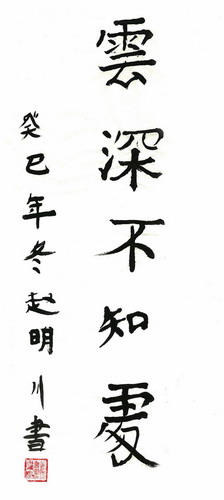 雲深不知處
癸巳年冬赵明川書